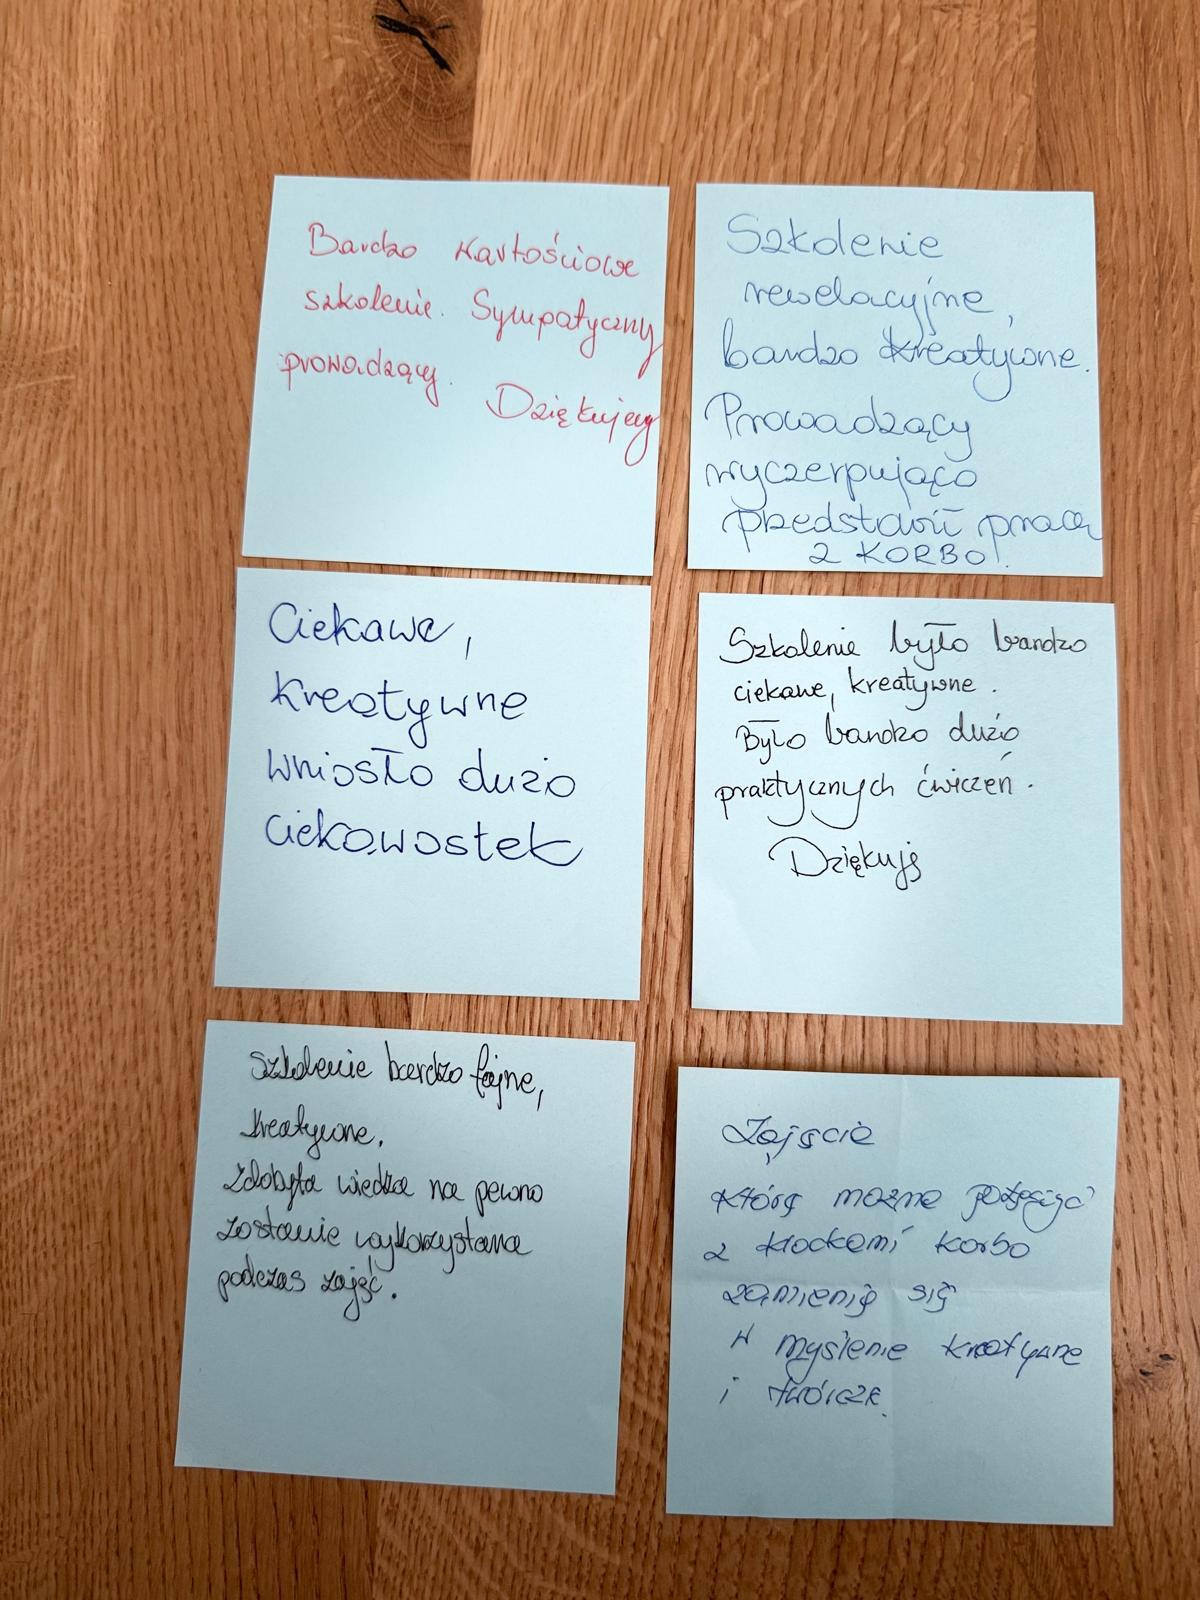 Bardzo wartościowe
szkolenie. Sympatyczny
prowadzący.
Dziękujemy
Szkolenie
rewelacyjne,
bardzo kreatywne.
Prowadzący
wyczerpująco
przedstawił pracę
z KORBO!
Ciekawe,
kreatywne
wniosło dużo
ciekawostek
Szkolenie było bardzo
ciekawe, kreatywne.
Było bardzo dużo
praktycznych ćwiczeń.
Dziękuję
Szkolenie bardzo fajne,
kreatywne.
Zdobyta wiedza na pewno
zostanie wykorzystana
podczas zajęć.
Zajęcie
które można
z klockami korbo
zamienię się
w myślenie kreatywne
i twórcze.